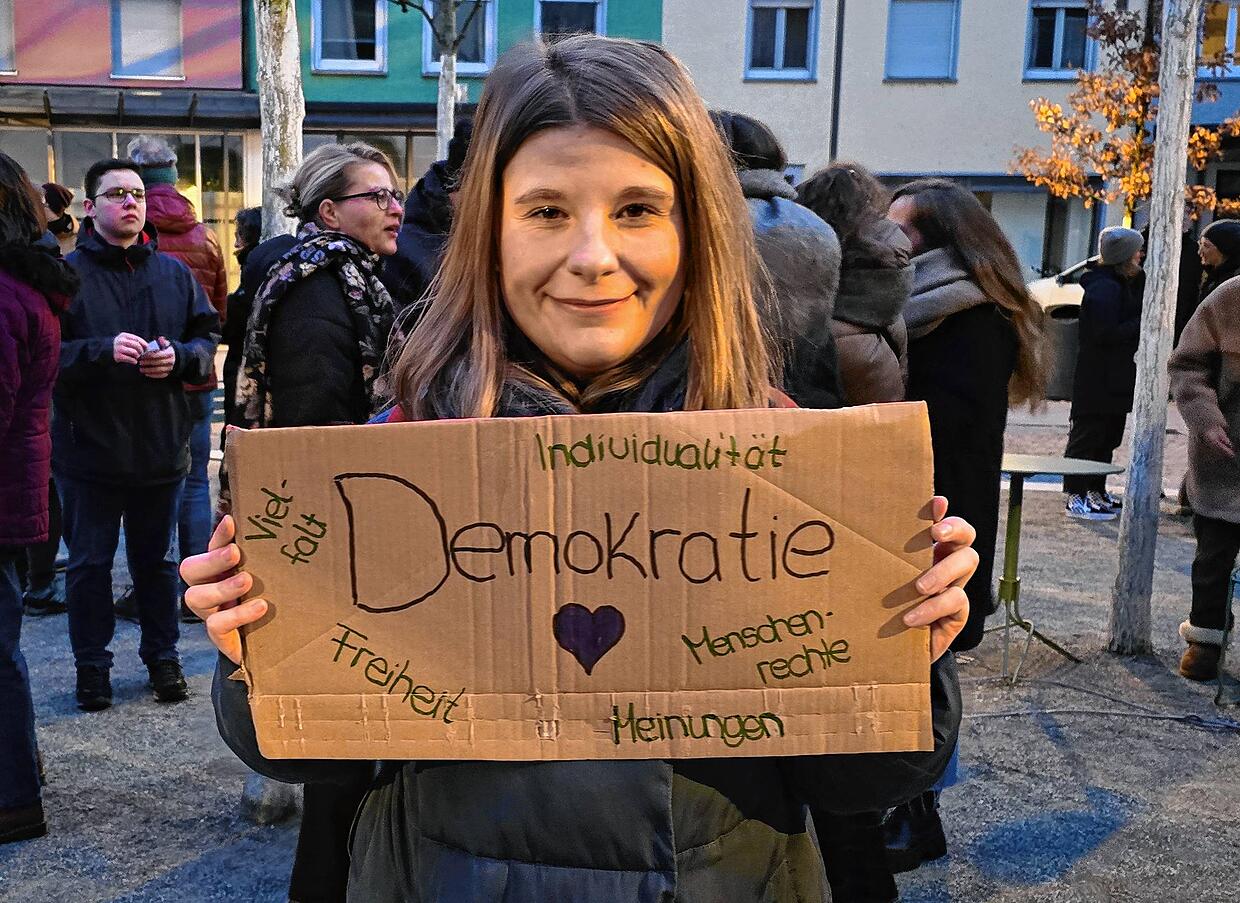 Individualität
Viel-
falt
Demokratie
Menschen-
rechte
Freiheit
Meinungen